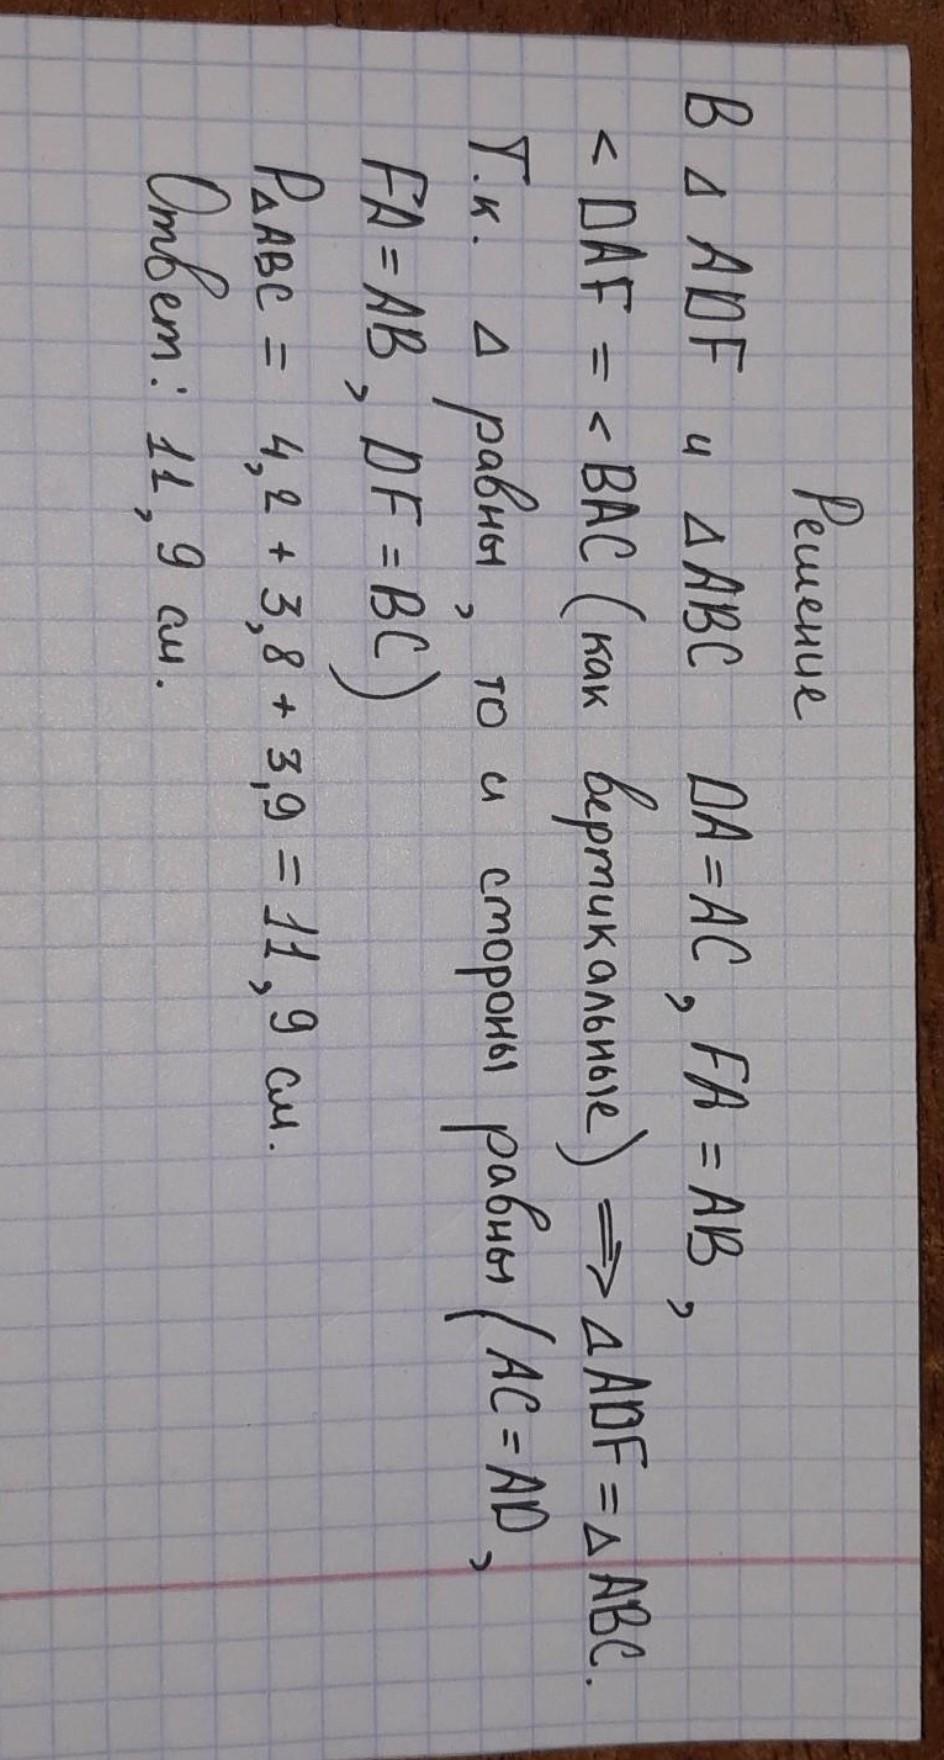 Решение
В △ ADF и △ ABC DA = AC, FA = AB,
< DAF = < BAC (как вертикальные) ⟹ △ ADF = △ ABC.
Т.к. △ равны, то и стороны равны (AC = AD,
FA = AB, DF = BC)
P△ABC = 4,2 + 3,8 + 3,9 = 11,9 см.
Ответ: 11,9 см.